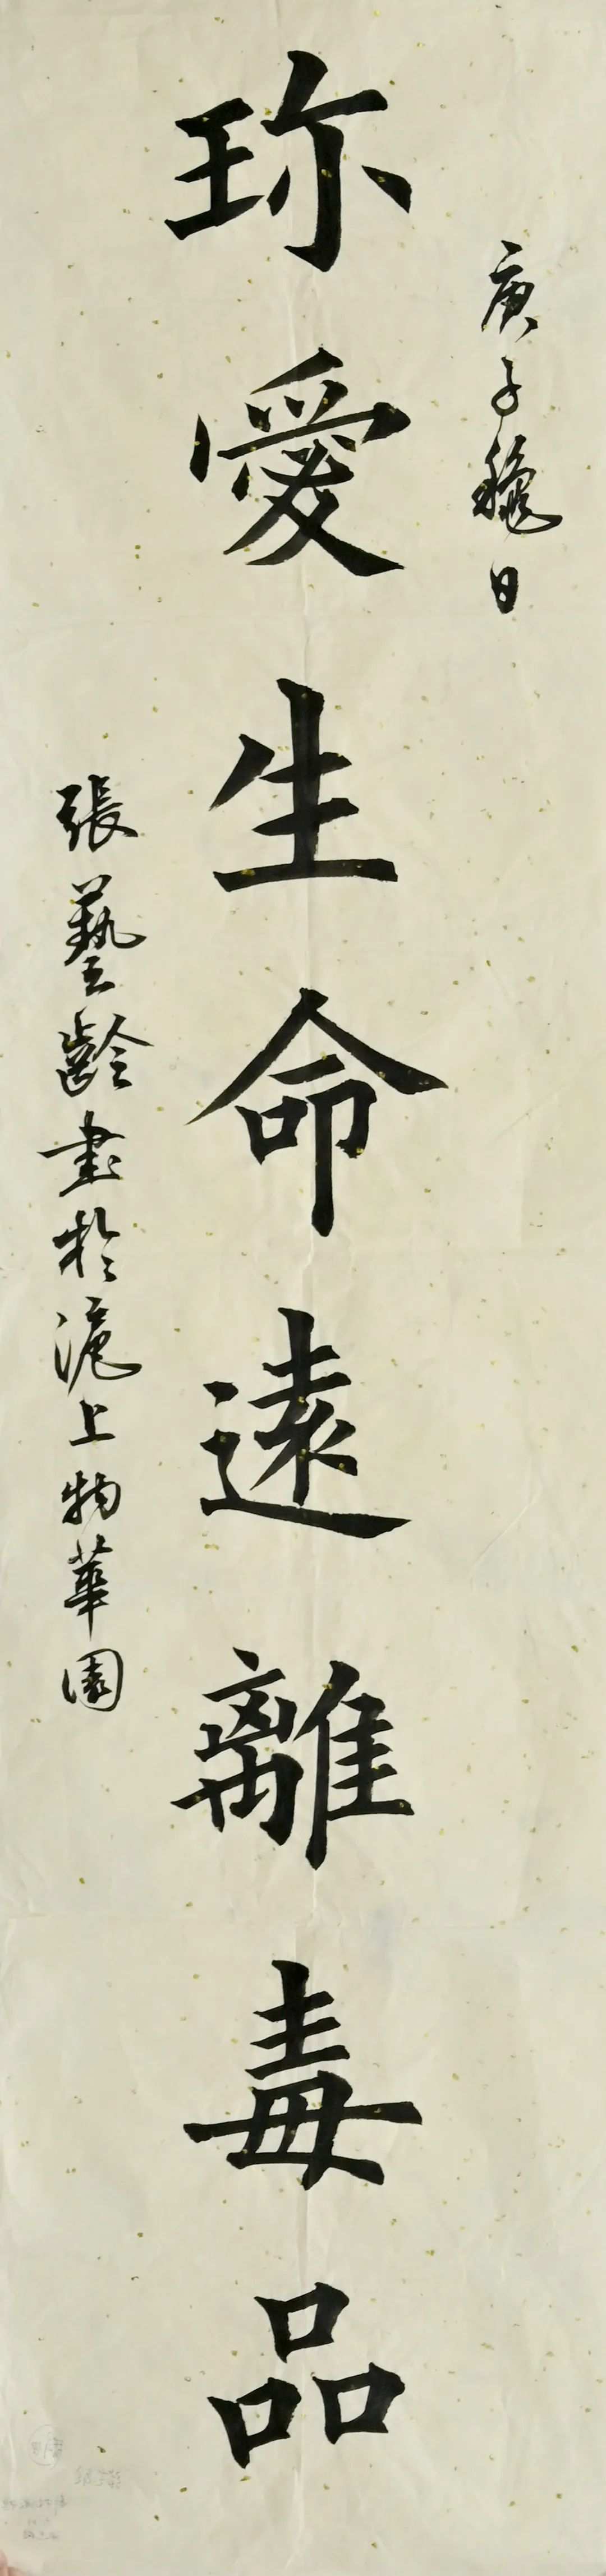 庚子龝日
珎愛生命遠離毒品
張藝齡書於滬上物華園